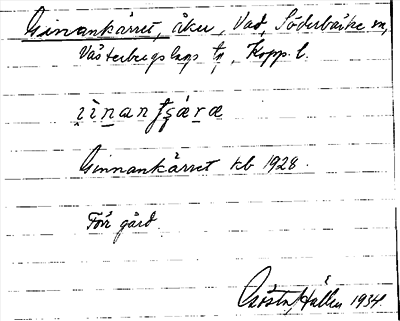 Ginnankärret, åker, Vad, Söderbärke sn,
Västerbergslags fg, Kopp. l.
Ginnankärret kb 1928.
Förr gård.
Gösta Hallen 1934.